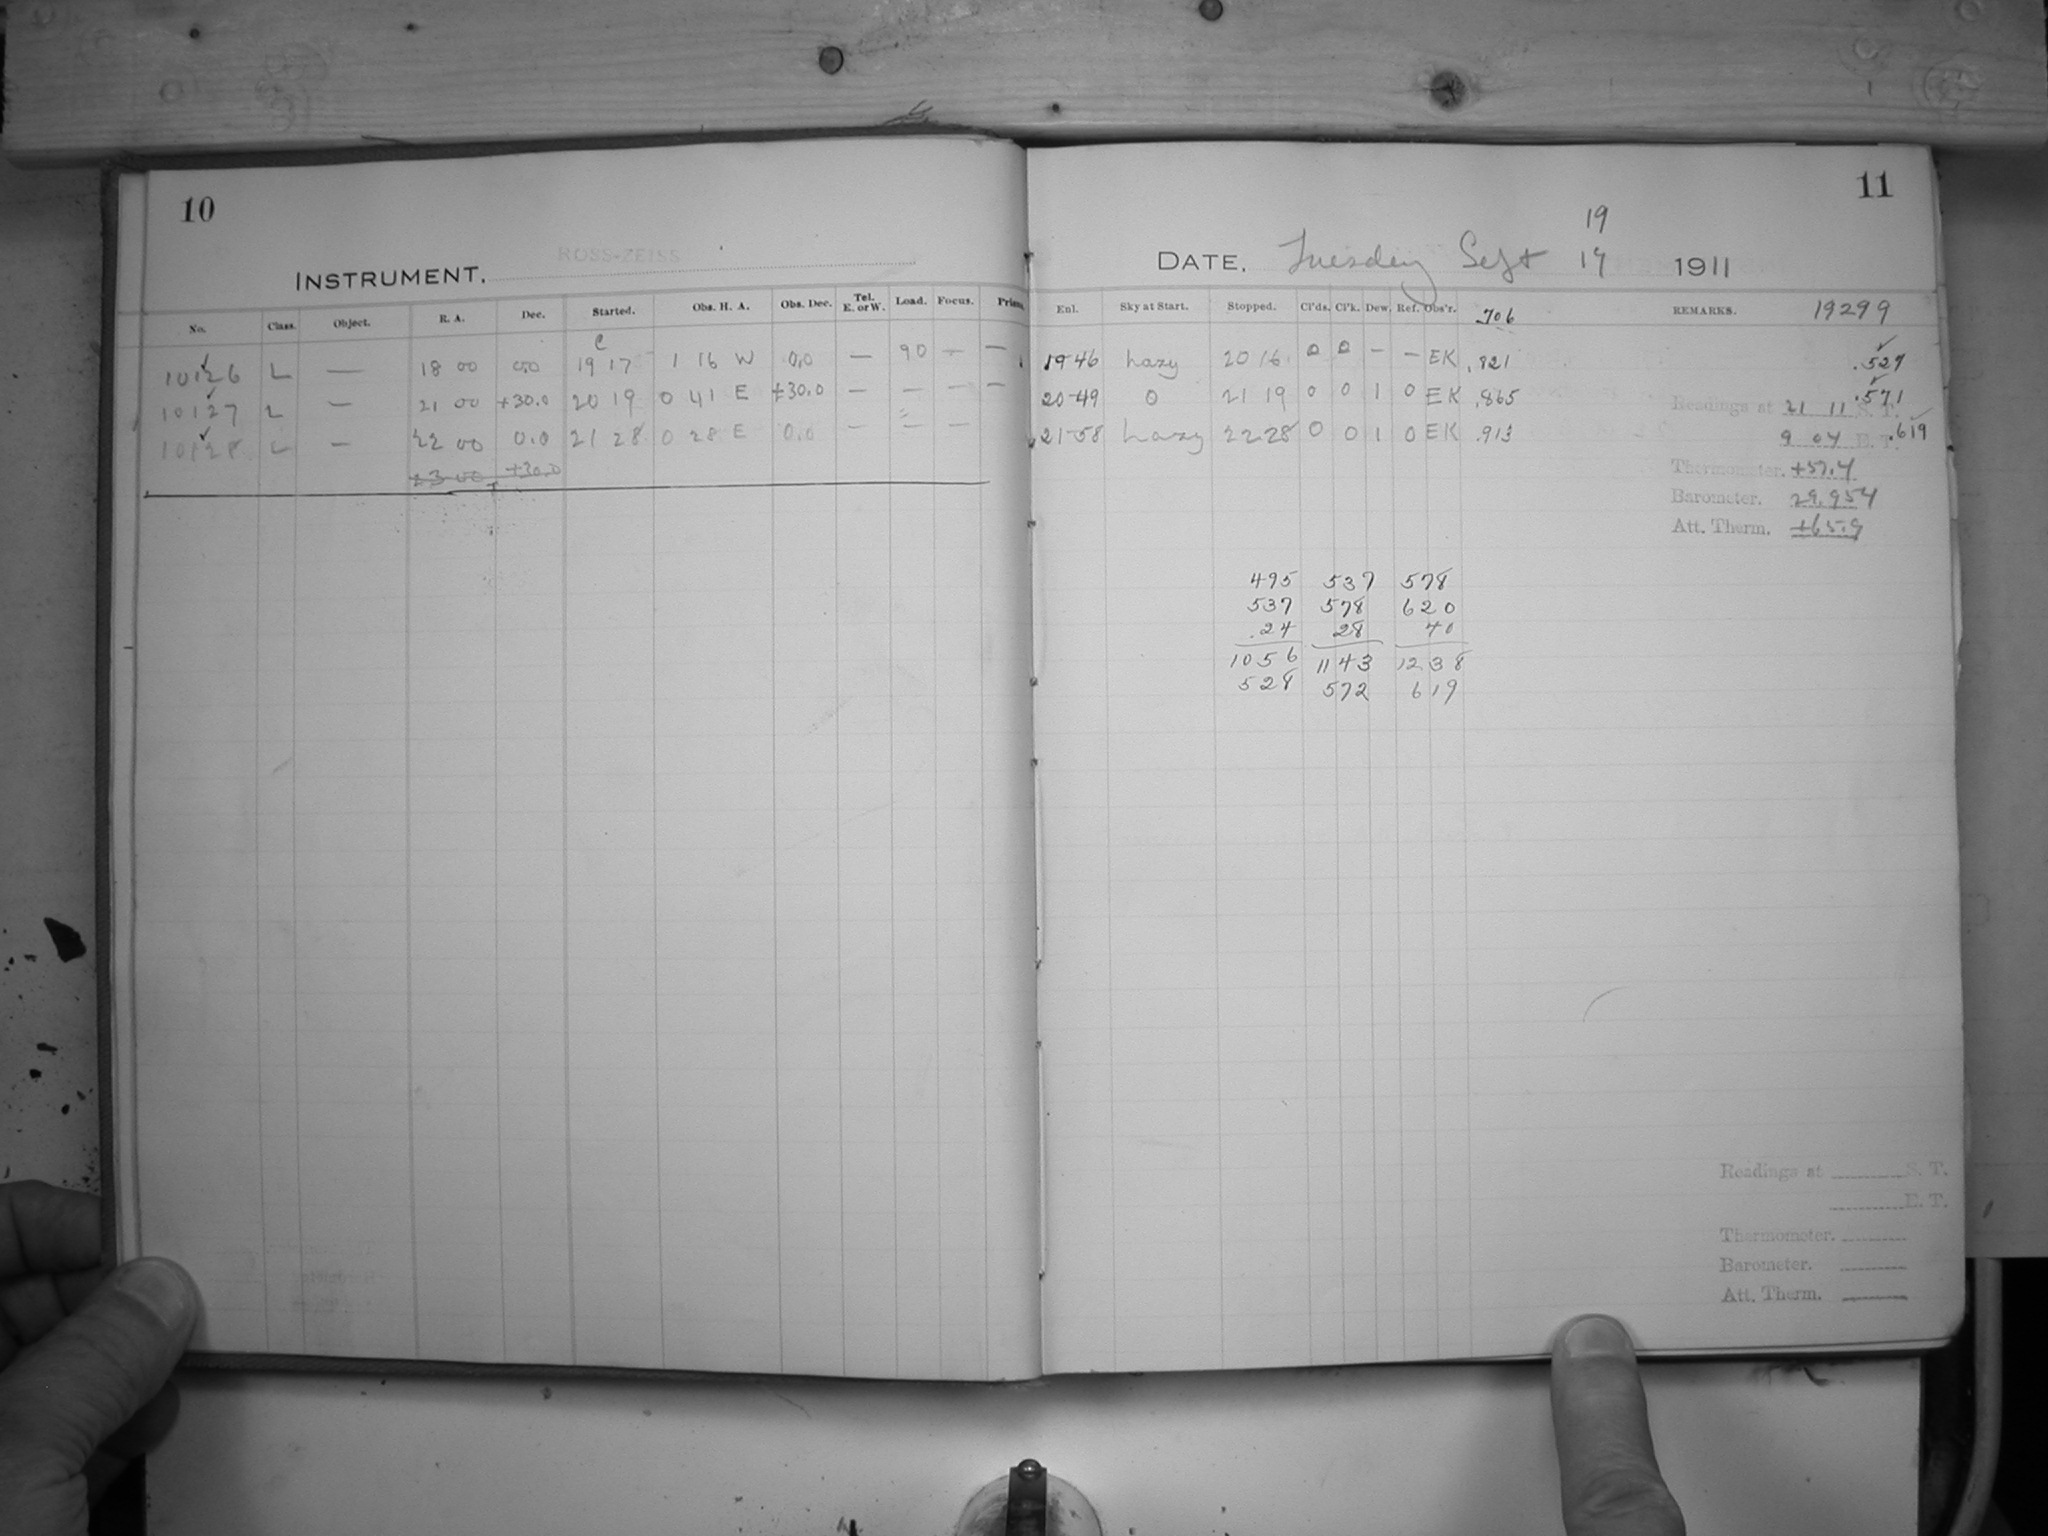 10
ROSS-ZEISS
INSTRUMENT.
No. Class. Object. R. A. Dec. Started. Obs. H. A. Obs. Dec. Tel. E. or W. Load. Focus.
10126 L — 18 00 0.0 19 17 1 16 W 0.0 — 90 — —
10127 L — 21 00 +30.0 20 19 0 41 E +30.0 — — — —
10128 L — 22 00 0.0 21 28 0 28 E 0.0 — — —
23 00 +30.0
11
19
DATE. Tuesday Sept 19 1911
Enl. Sky at Start. Stopped. Cl'ds. Cl'k. Dew. Ref. Obs'r. 706 REMARKS. 19299
19-46 hazy 20 16 0 0 — — EK .821 .527
20-49 0 21 19 0 0 1 0 EK .865 .571
Readings at 21 11 S. T.
21-58 hazy 22 28 0 0 1 0 EK .913 .619
9 04 E. T.
Thermometer. +57.4
Barometer. 29.954
Att. Therm. +65.9
495 537 578
537 578 620
.24 28 40
1056 1143 1238
528 572 619
Readings at S. T.
E. T.
Thermometer.
Barometer.
Att. Therm.